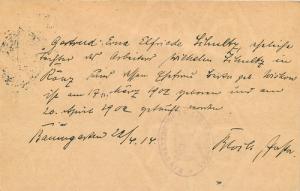 Gertrud Erna Elfriede Schultz, eheliche
Tochter des Arbeiters Wilhelm Schultz in
und dessen Ehefrau geb.
ist am 17. März 1902 geboren und am
20. April 1902 getauft worden
Baumgarten 22/4.14.